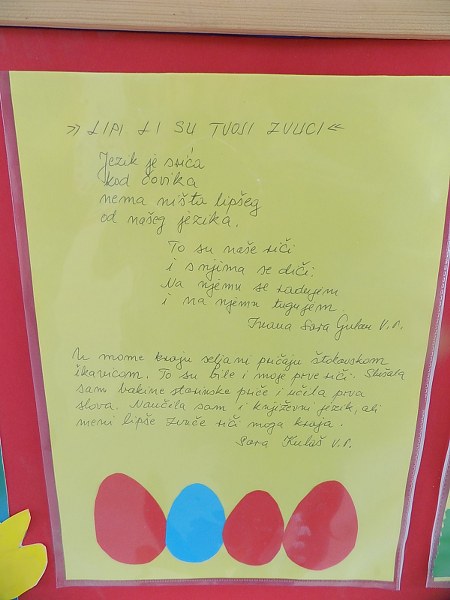 » LIPI LI SU TVOJI ZVUCI «
Jezik je srića
kod čovika
nema ništa lipšeg
od našeg jezika.
To su naše riči
i s njima se diči.
Na njemu se radujem
i na njemu tugujem.
Ivana Sara Guban V.r.
U mome kraju seljani pričaju štokavskom
ikavicom. To su bile i moje prve riči. Slušala
sam bakine starinske priče i učela prva
slova. Naučela sam i književni jezik, ali
meni lipše zvuče riči moga kraja.
Sara Kulaš V.r.